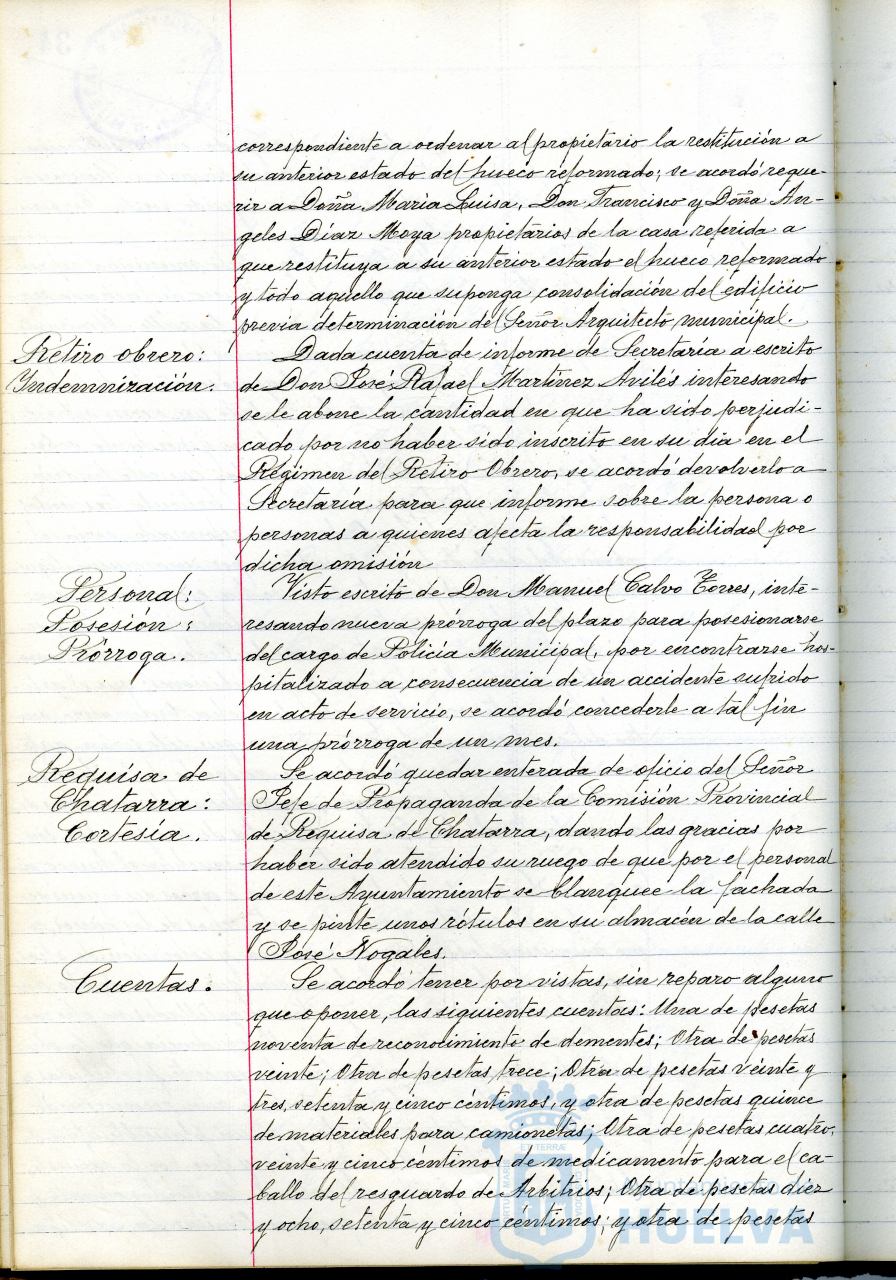 correspondiente a ordenar al propietario la restitución a
su anterior estado del hueco reformado; se acordó reque-
rir a Doña María Luisa, Don Francisco y Doña An-
geles Díaz Moya propietarios de la casa referida a
que restituya a su anterior estado el hueco reformado
y todo aquello que suponga consolidación del edificio
previa determinación del Señor Arquitecto municipal.
Retiro obrero:
Indemnización.
Dada cuenta de informe de Secretaría a escrito
de Don José Rafael Martínez Avilés interesando
se le abone la cantidad en que ha sido perjudi-
cado por no haber sido inscrito en su dia en el
Régimen del Retiro Obrero, se acordó devolverlo a
Secretaría para que informe sobre la persona o
personas a quienes afecta la responsabilidad por
dicha omisión
Personal:
Posesión:
Prórroga.
Visto escrito de Don Manuel Calvo Torres, inte-
resando nueva prórroga del plazo para posesionarse
del cargo de Policía Municipal, por encontrarse hos-
pitalizado a consecuencia de un accidente sufrido
en acto de servicio, se acordó concederle a tal fin
una prórroga de un mes.
Requisa de
Chatarra:
Cortesía.
Se acordó quedar enterada de oficio del Señor
Jefe de Propaganda de la Comisión Provincial
de Requisa de Chatarra, dando las gracias por
haber sido atendido su ruego de que por el personal
de este Ayuntamiento se blanquee la fachada
y se pinte unos rótulos en su almacén de la calle
José Nogales.
Cuentas.
Se acordó tener por vistas, sin reparo alguno
que oponer, las siguientes cuentas: Una de pesetas
noventa de reconocimiento de dementes; Otra de pesetas
veinte; Otra de pesetas trece; Otra de pesetas veinte y
tres, setenta y cinco céntimos, y otra de pesetas quince
de materiales para camionetas; Otra de pesetas cuatro,
veinte y cinco céntimos de medicamento para el ca-
ballo del resguardo de Arbitrios; Otra de pesetas diez
y ocho, setenta y cinco céntimos; y otra de pesetas
Ayuntamiento de
HUELVA